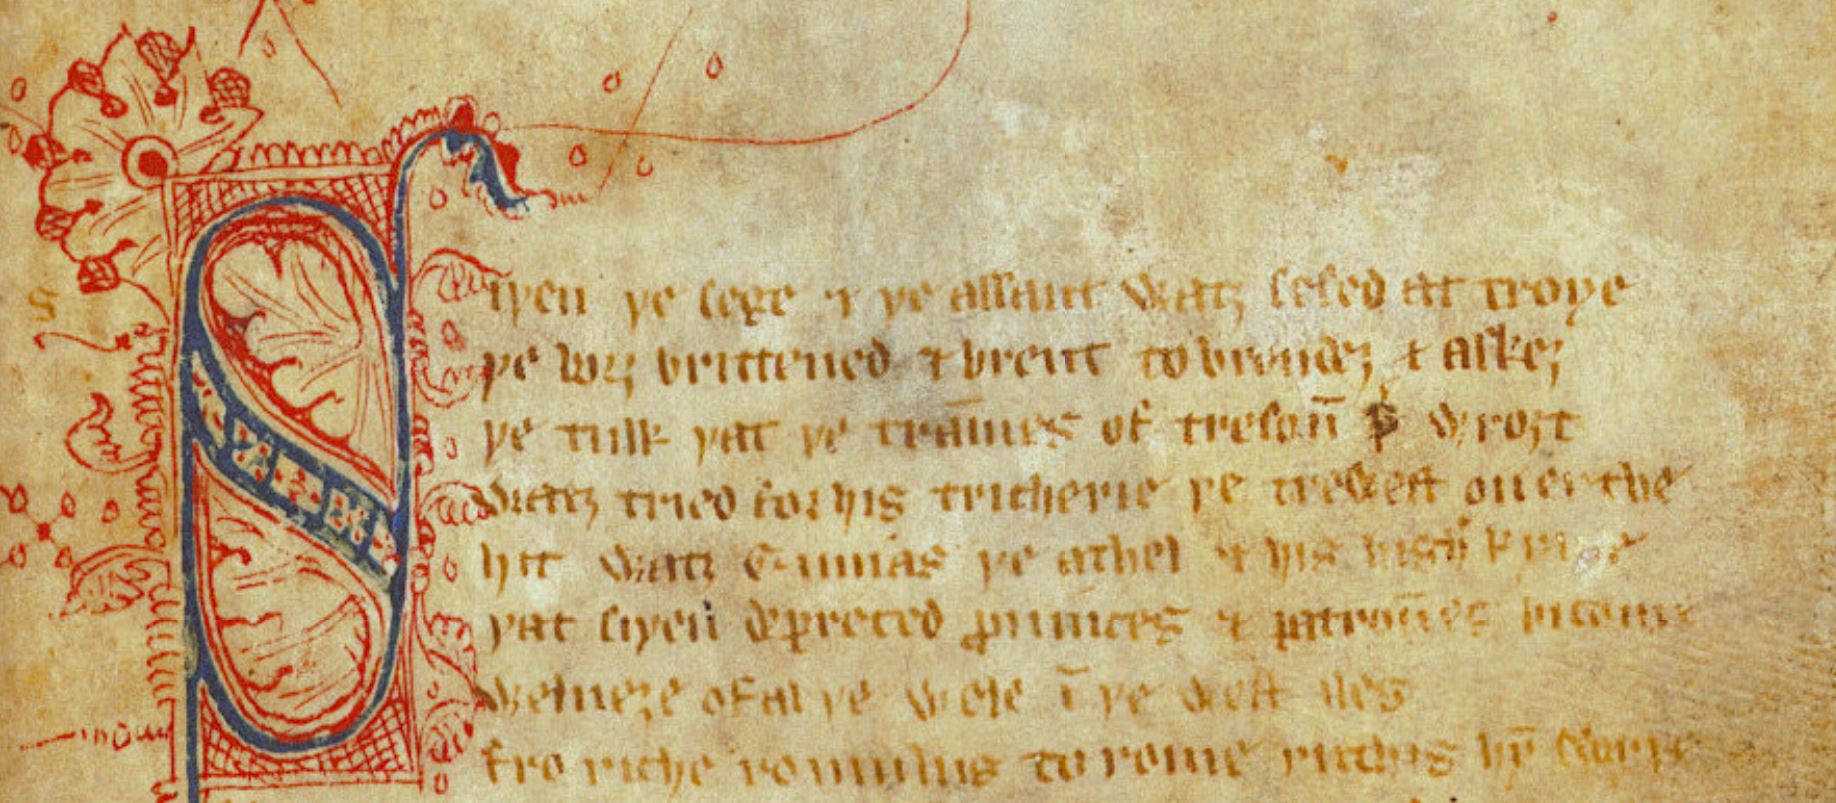 Siþen þe sege & þe assaut watz sesed at troye
þe borȝ brittened & brent to brondeȝ & askez
þe tulk þat þe tra̅mes of tresou̅n þ̷ wroȝt
watz tried for his tricherie þe trewest on erthe
hit watz Ennias þe athel & his highe kynde
þat siþen depreced prouinces & patrou̅nes bicome
welneȝe of al þe wele i̅ þe west iles
fro riche romulus to rome ricchis hy̅ swyþe